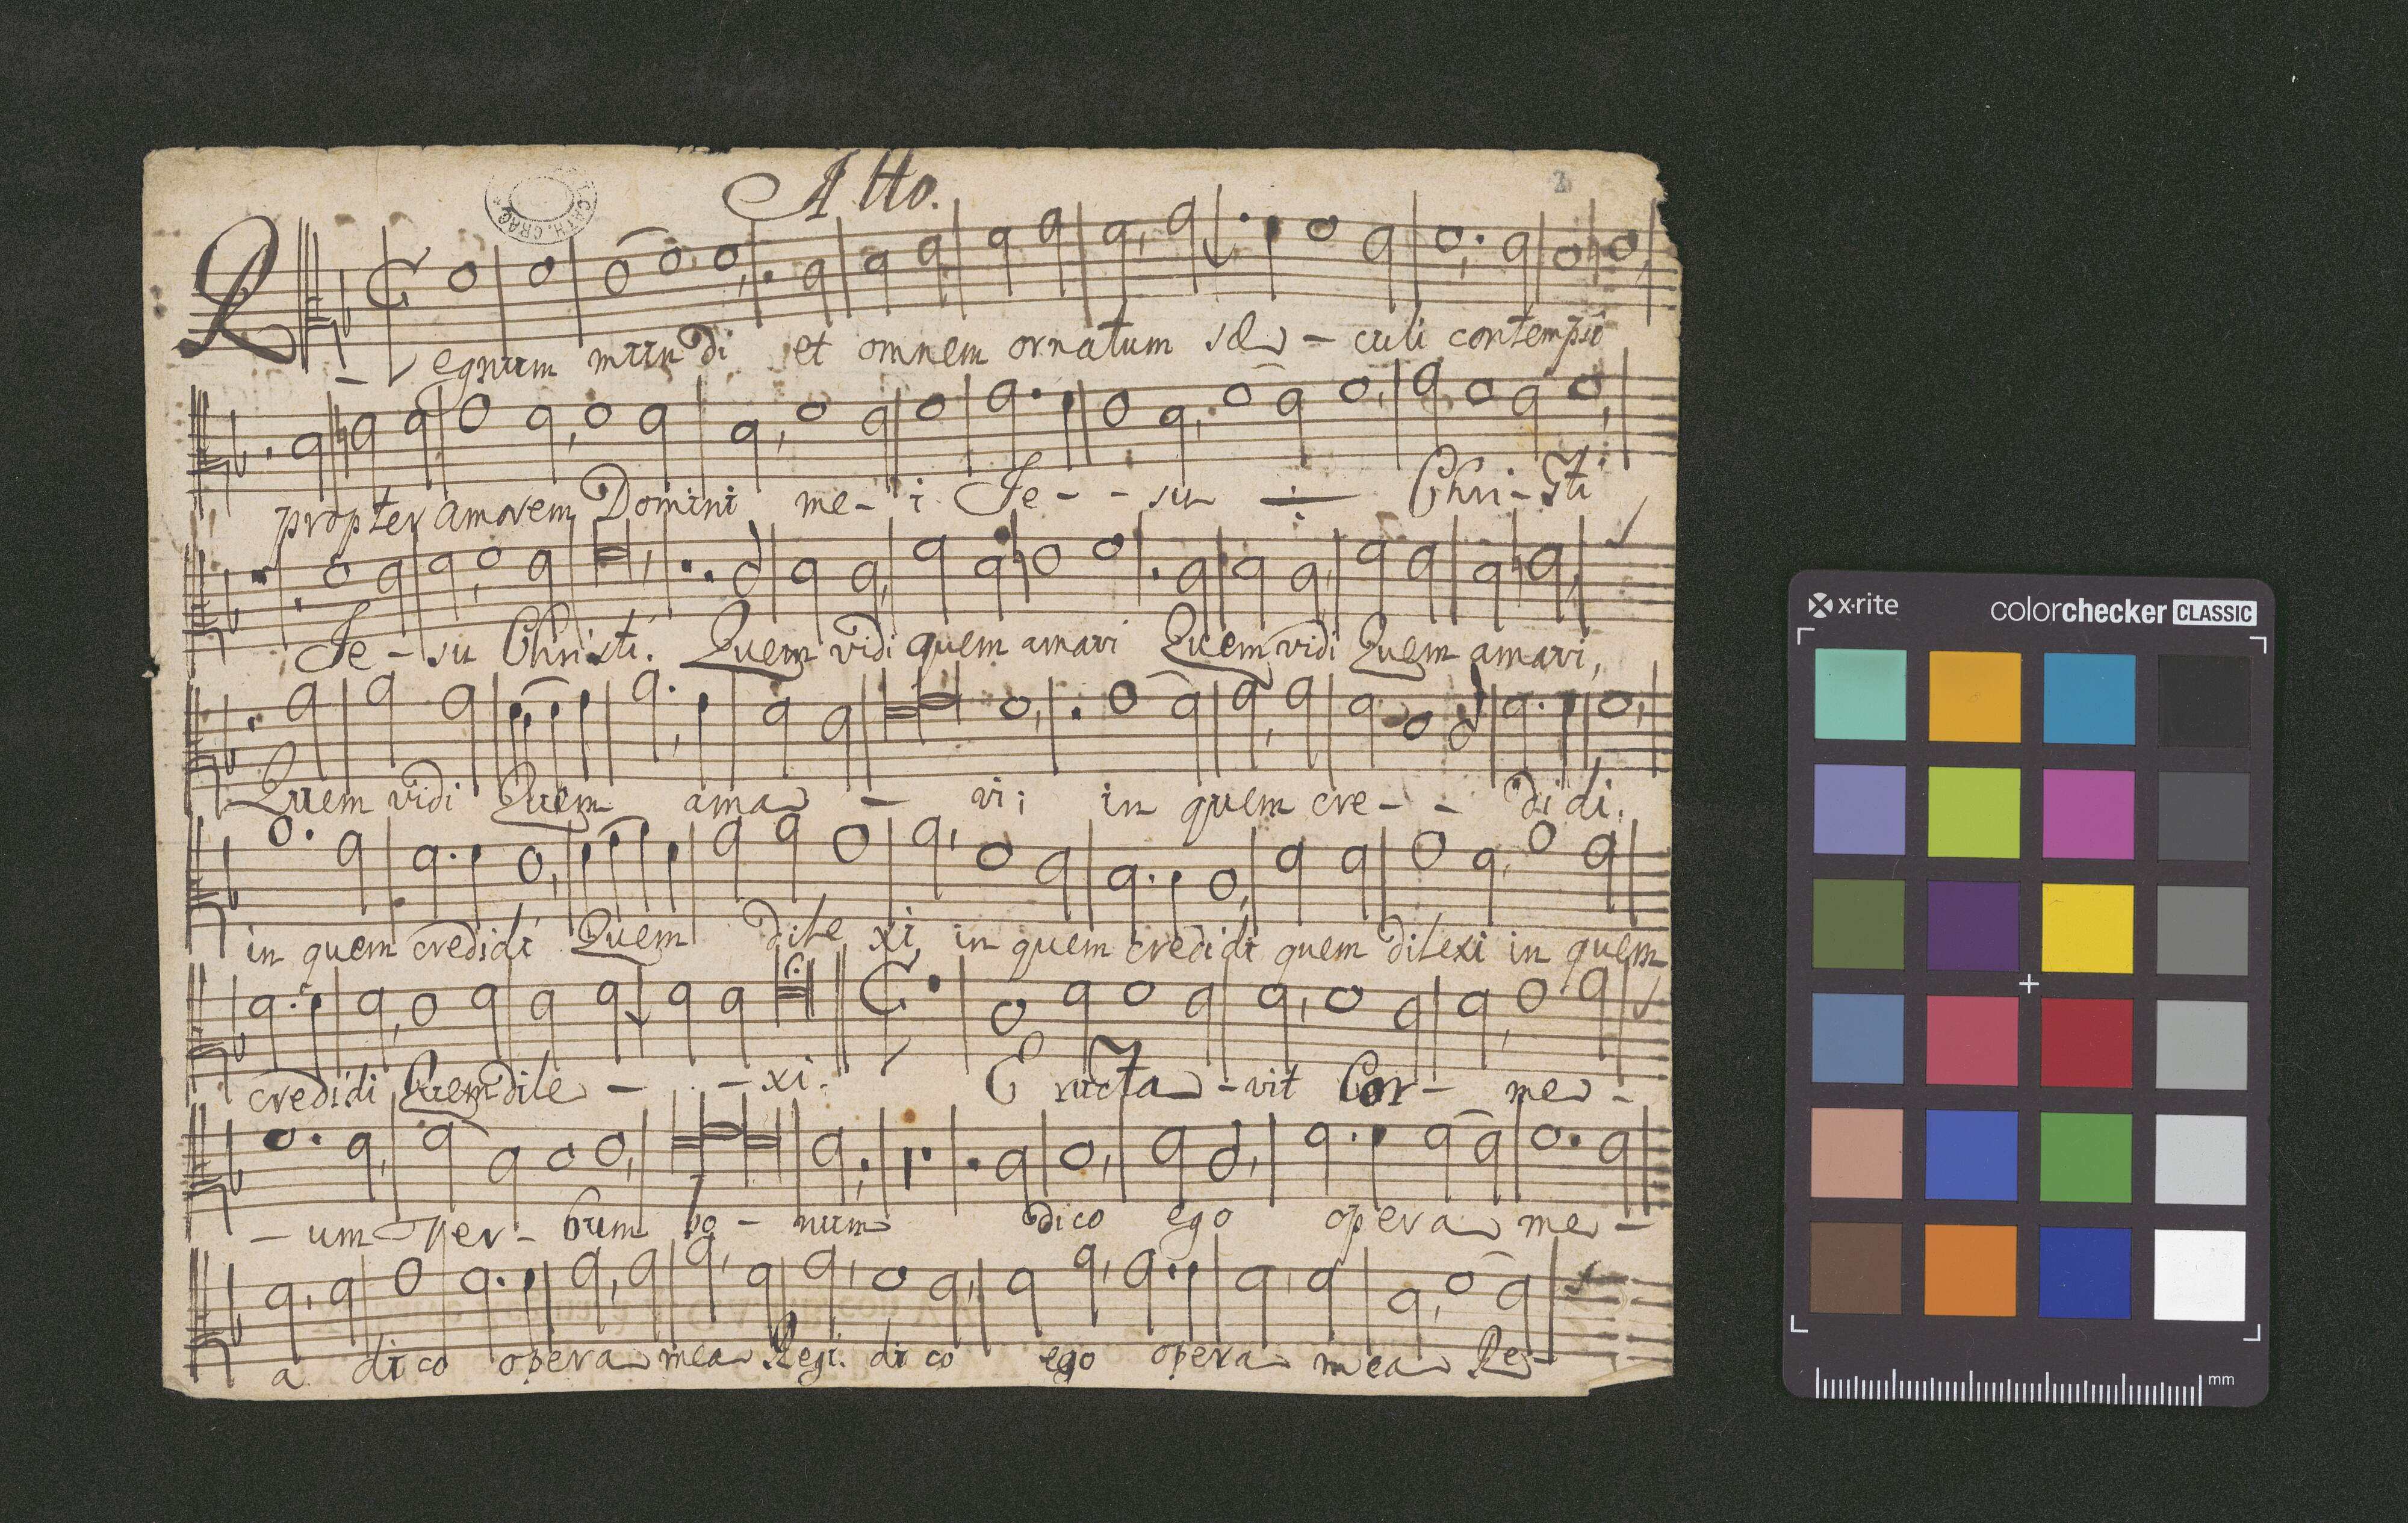 Alto.
2
CATH. CRAC
Regnum mundi et omnem ornatum sæ - culi contempsi
propter amorem Domini me - i Je - - su Chri - sti
Je - su Christi. Quem vidi quem amavi Quem vidi Quem amavi,
Quem vidi Quem ama - vi; in quem cre - - di di.
in quem credidi Quem dile xi in quem credidi quem dilexi in quem
credidi Quem dile - - xi. Eructa - vit Cor - me -
- um Ver - bum bo - num dico ego opera me -
a dico opera mea Regi. dico ego opera mea Re -
x·rite
colorchecker CLASSIC
mm